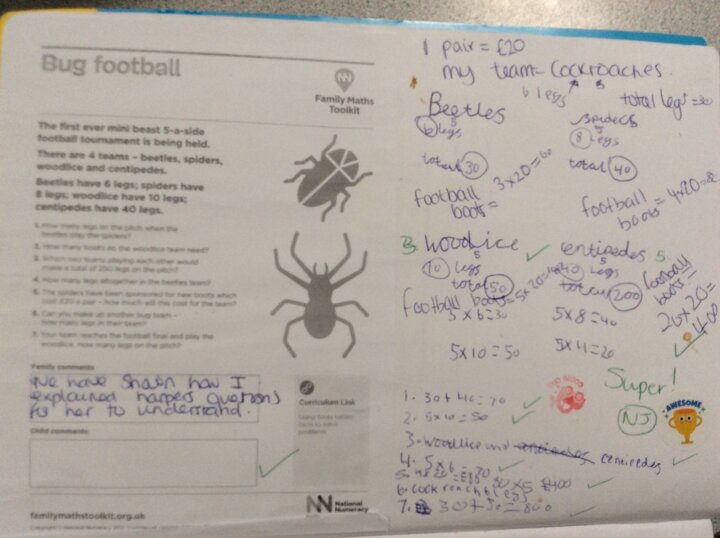 Bug football
Family Maths
Toolkit
The first ever mini beast 5-a-side
football tournament is being held.
There are 4 teams – beetles, spiders,
woodlice and centipedes.
Beetles have 6 legs; spiders have
8 legs; woodlice have 10 legs;
centipedes have 40 legs.
1. How many legs on the pitch when the
beetles play the spiders?
2. How many boots do the woodlice team need?
3. Which two teams playing each other would
make a total of 250 legs on the pitch?
4. How many legs altogether in the beetles team?
5. The spiders have been sponsored for new boots which
cost £20 a pair – how much will this cost for the team?
6. Can you make up another bug team –
how many legs in their team?
7. Your team reaches the football final and play the
woodlice. How many legs on the pitch?
Family comments
We have shown how I
explained harpers questions
for her to understand.
Curriculum Link
Child comments
familymathstoolkit.org.uk
National
Numeracy
1 pair = £20
my team = Cockroaches.
6 legs 5
total legs = 30
Beetles
6 legs
5
total 30
football
boots =
3 x 20 = 60
spiders
5
8 legs
total 40
football
boots = 4x20=
3. woodlice
5
10 legs
total 50
football boots = 5x20=
entipedes 5.
5
40 legs
total 200
football
boots =
20 x 20 =
400
5 x 6 = 30
5 x 8 = 40
5 x 10 = 50
5 x 4 = 20
Super!
NJ
AWESOME
1. 30 + 40 = 70
2. 5 x 10 = 50
3. woodlice and centipedes
4. 5 x 6 = 30
7. 30 + 50 =